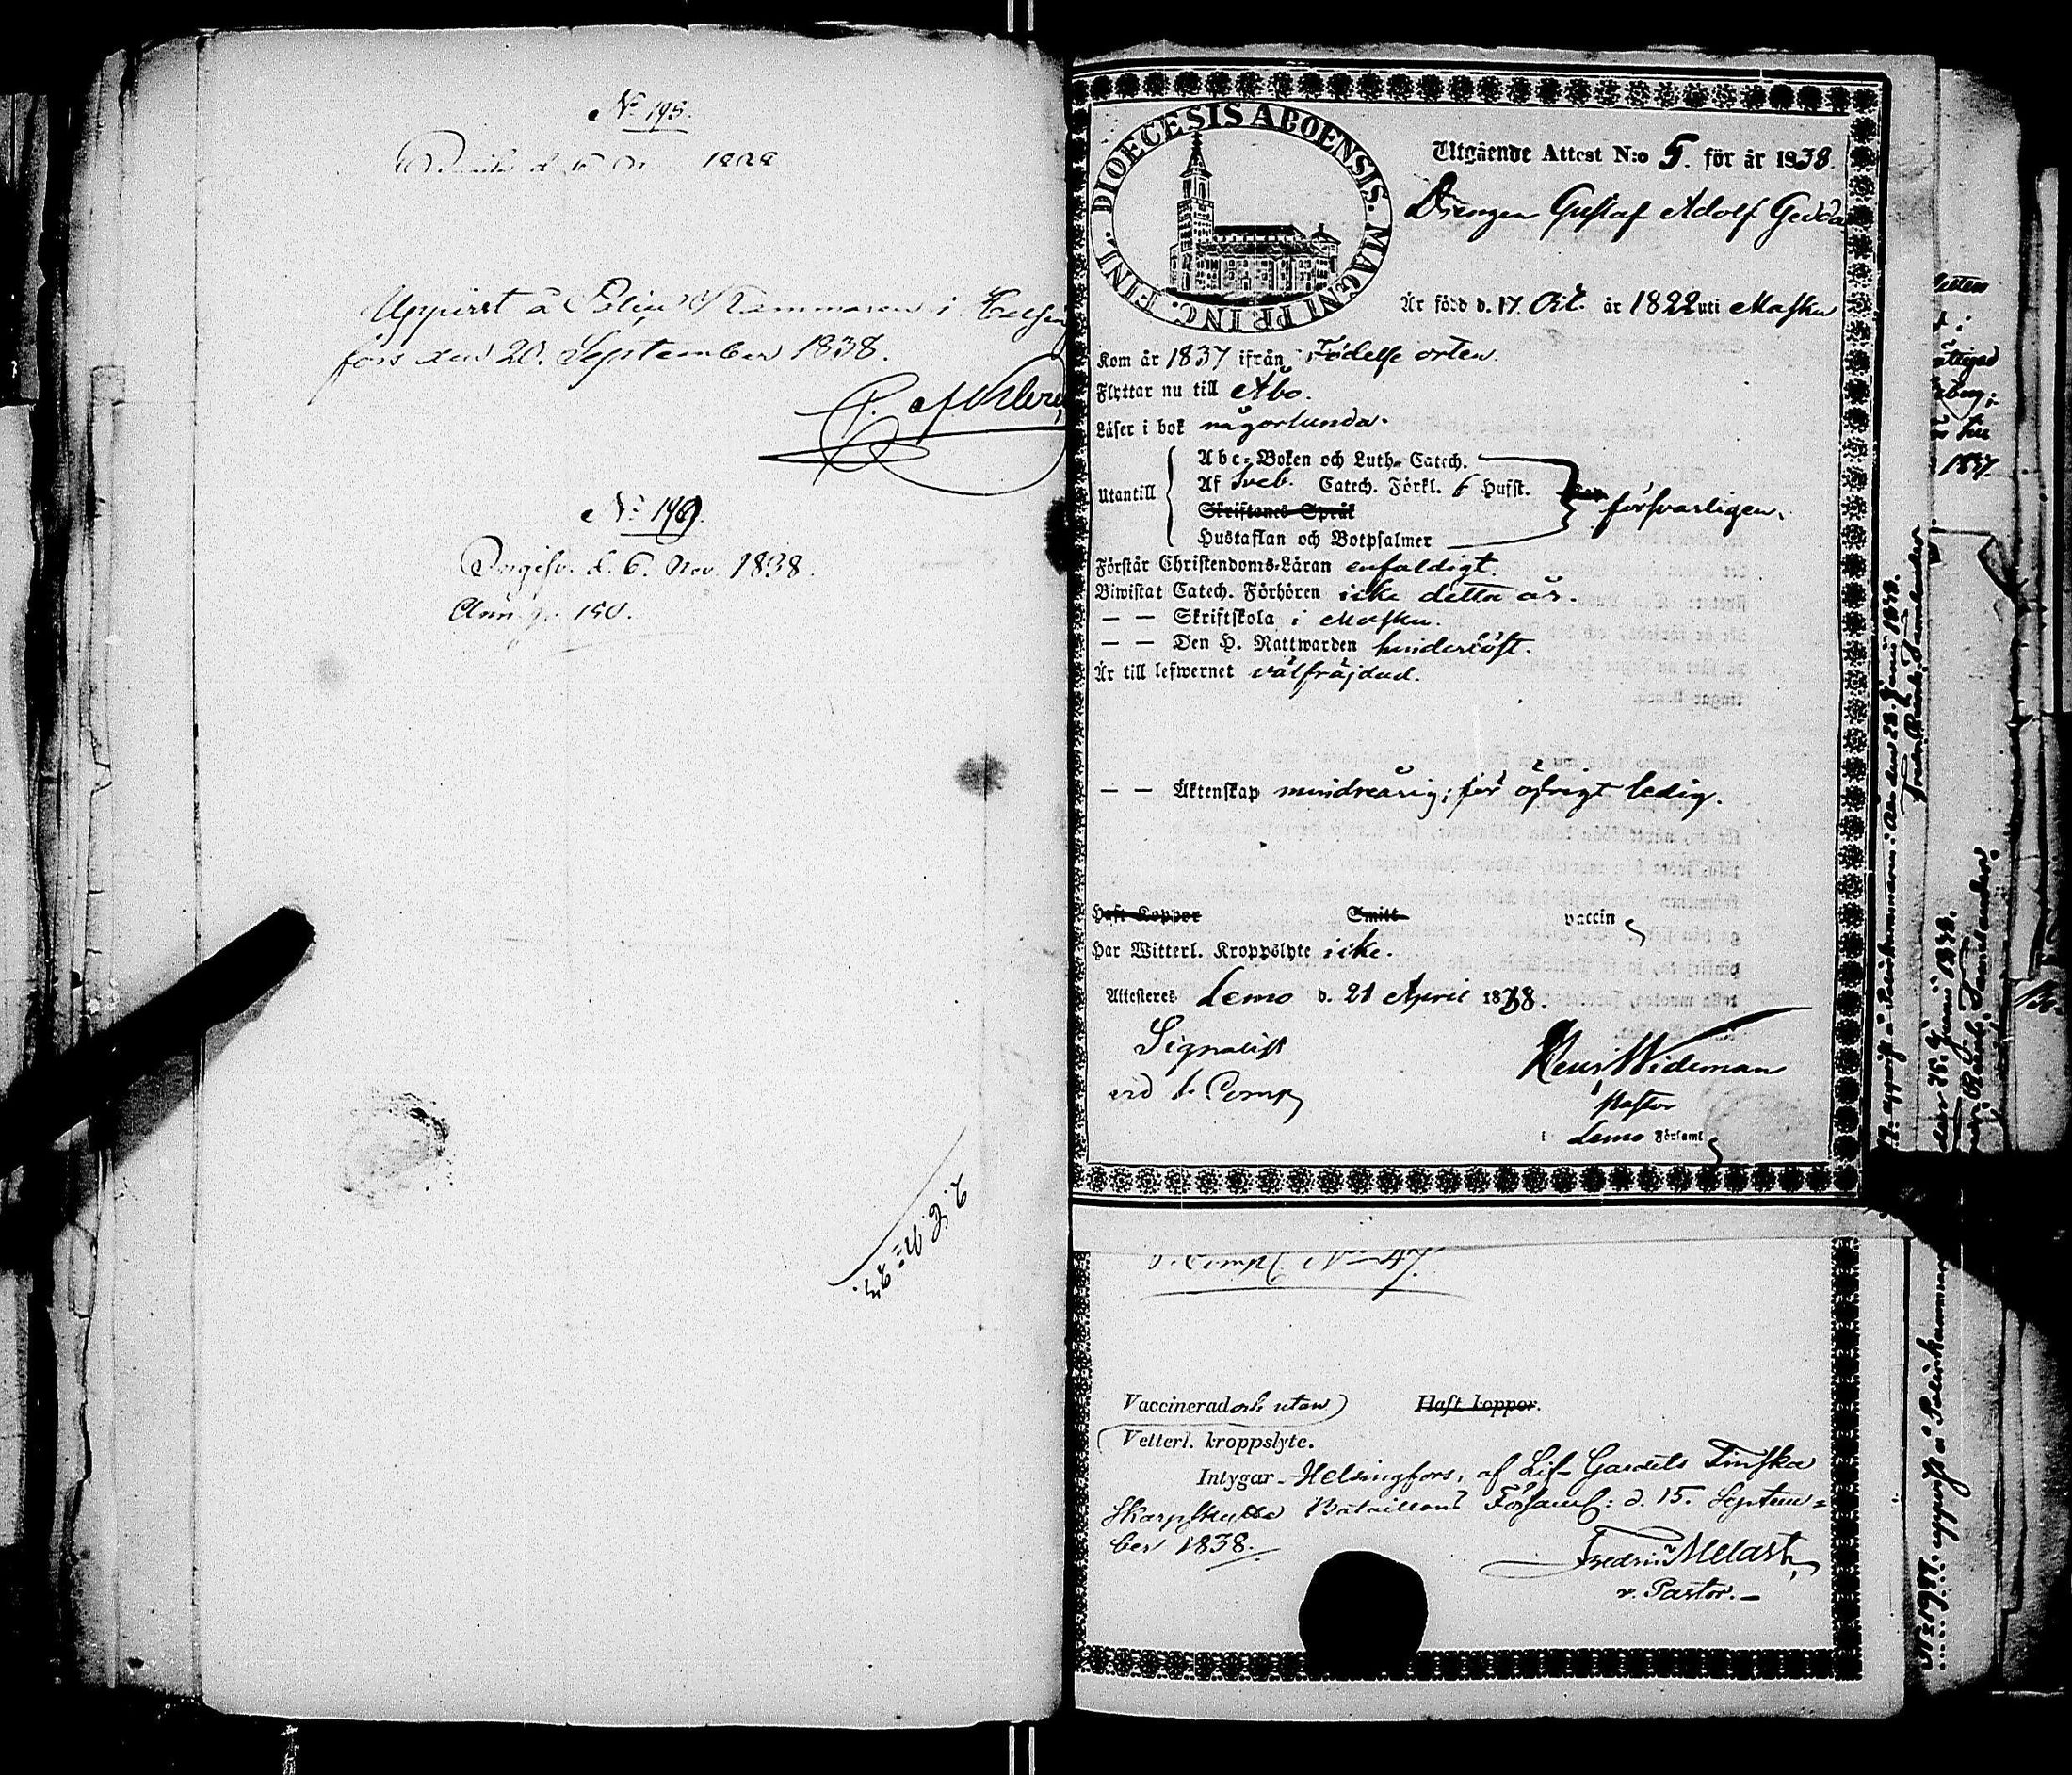 No 195.
1838
Uppvist å Polise Kammaren i Helsing
fors den 20. September 1838.
No 199.
d. 6. Nov. 1838.
190.
DIOECESIS ABOENSIS. MAGNI PRINC. FINL.
Utgående Attest N:o 5. för år 1838.
Drengen Gustaf Adolf Gedda
Är född d. 17 Oct. år 1822 uti Masku
Kom år 1837 ifrån Födelse orten.
Flyttar nu till Åbo.
Läser i bok någorlunda.
Utantill
Abc-Boken och Luth. Catech.
Af Sveb. Catech. Förkl. 6 Hufst.
Skriftenes Språk
Hustaflan och Botpsalmer
försvarligen.
Förstår Christendoms-Läran enfaldigt.
Biwistat Catech. Förhören icke detta år.
— — Skriftskola i Masku.
— — Den H. Nattwarden hinderlöst.
Är till lefwernet välfräjdad.
— — Äktenskap mindreårig; för öfrigt ledig.
Haft Koppor Smitt vaccin
Har Witterl. Kroppslyte icke.
Attesteras Lemo d. 21 April 1838.
Signalist
vid 1. Comp
Henr Wideman
Pastor
i Lemo Församl
1. Comp No 47.
Vaccinerad och utan Haft koppor.
Vetterl. kroppslyte.
Intygar Helsingfors, af Lif-Gardets Finska
Skarpskytte Bataillons Församl: d. 15. Septem=
ber 1838.
Fredric Melart
v. Pastor.
uppvist å Poliskammaren i Åbo den 22 Junii 1838.
den 25. Junii 1838.
1837
uppvist å Poliskammaren